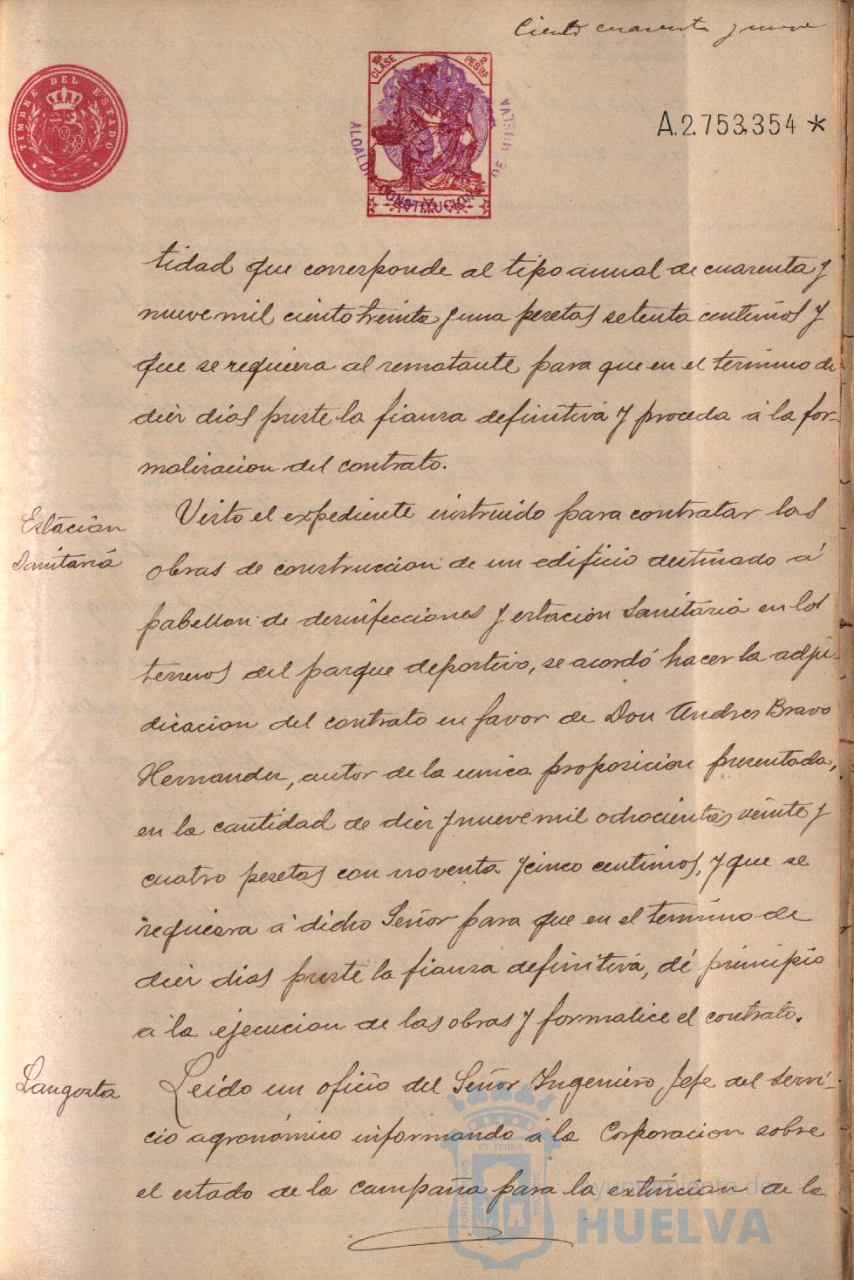 Ciento cuarenta y nueve
TIMBRE DEL ESTADO
10ª CLASE
2 PESETAS
ALCALDIA CONSTITUCIONAL DE HUELVA
A.2.753,354 *
tidad que corresponde al tipo anual de cuarenta y
nueve mil ciento treinta y una pesetas setenta centimos y
que se requiera al rematante para que en el termino de
diez dias preste la fianza definitiva y proceda á la for-
malizacion del contrato.
Estación
Sanitaria
Visto el expediente instruido para contratar las
obras de construccion de un edificio destinado á
pabellon de desinfecciones y estación Sanitaria en los
terrenos del parque deportivo, se acordó hacer la adju-
dicacion del contrato en favor de Don Andres Bravo
Hernandez, autor de la unica proposicion presentada,
en la cantidad de diez y nueve mil ochocientas veinte y
cuatro pesetas con noventa y cinco centimos, y que se
requiera á dicho Señor para que en el termino de
diez dias preste la fianza definitiva, dé principio
á la ejecucion de las obras y formalice el contrato.
Langosta
Leido un oficio del Señor Ingeniero Jefe del servi-
cio agronómico informando á la Corporacion sobre
el estado de la campaña para la extincion de la
Ayuntamiento de
HUELVA